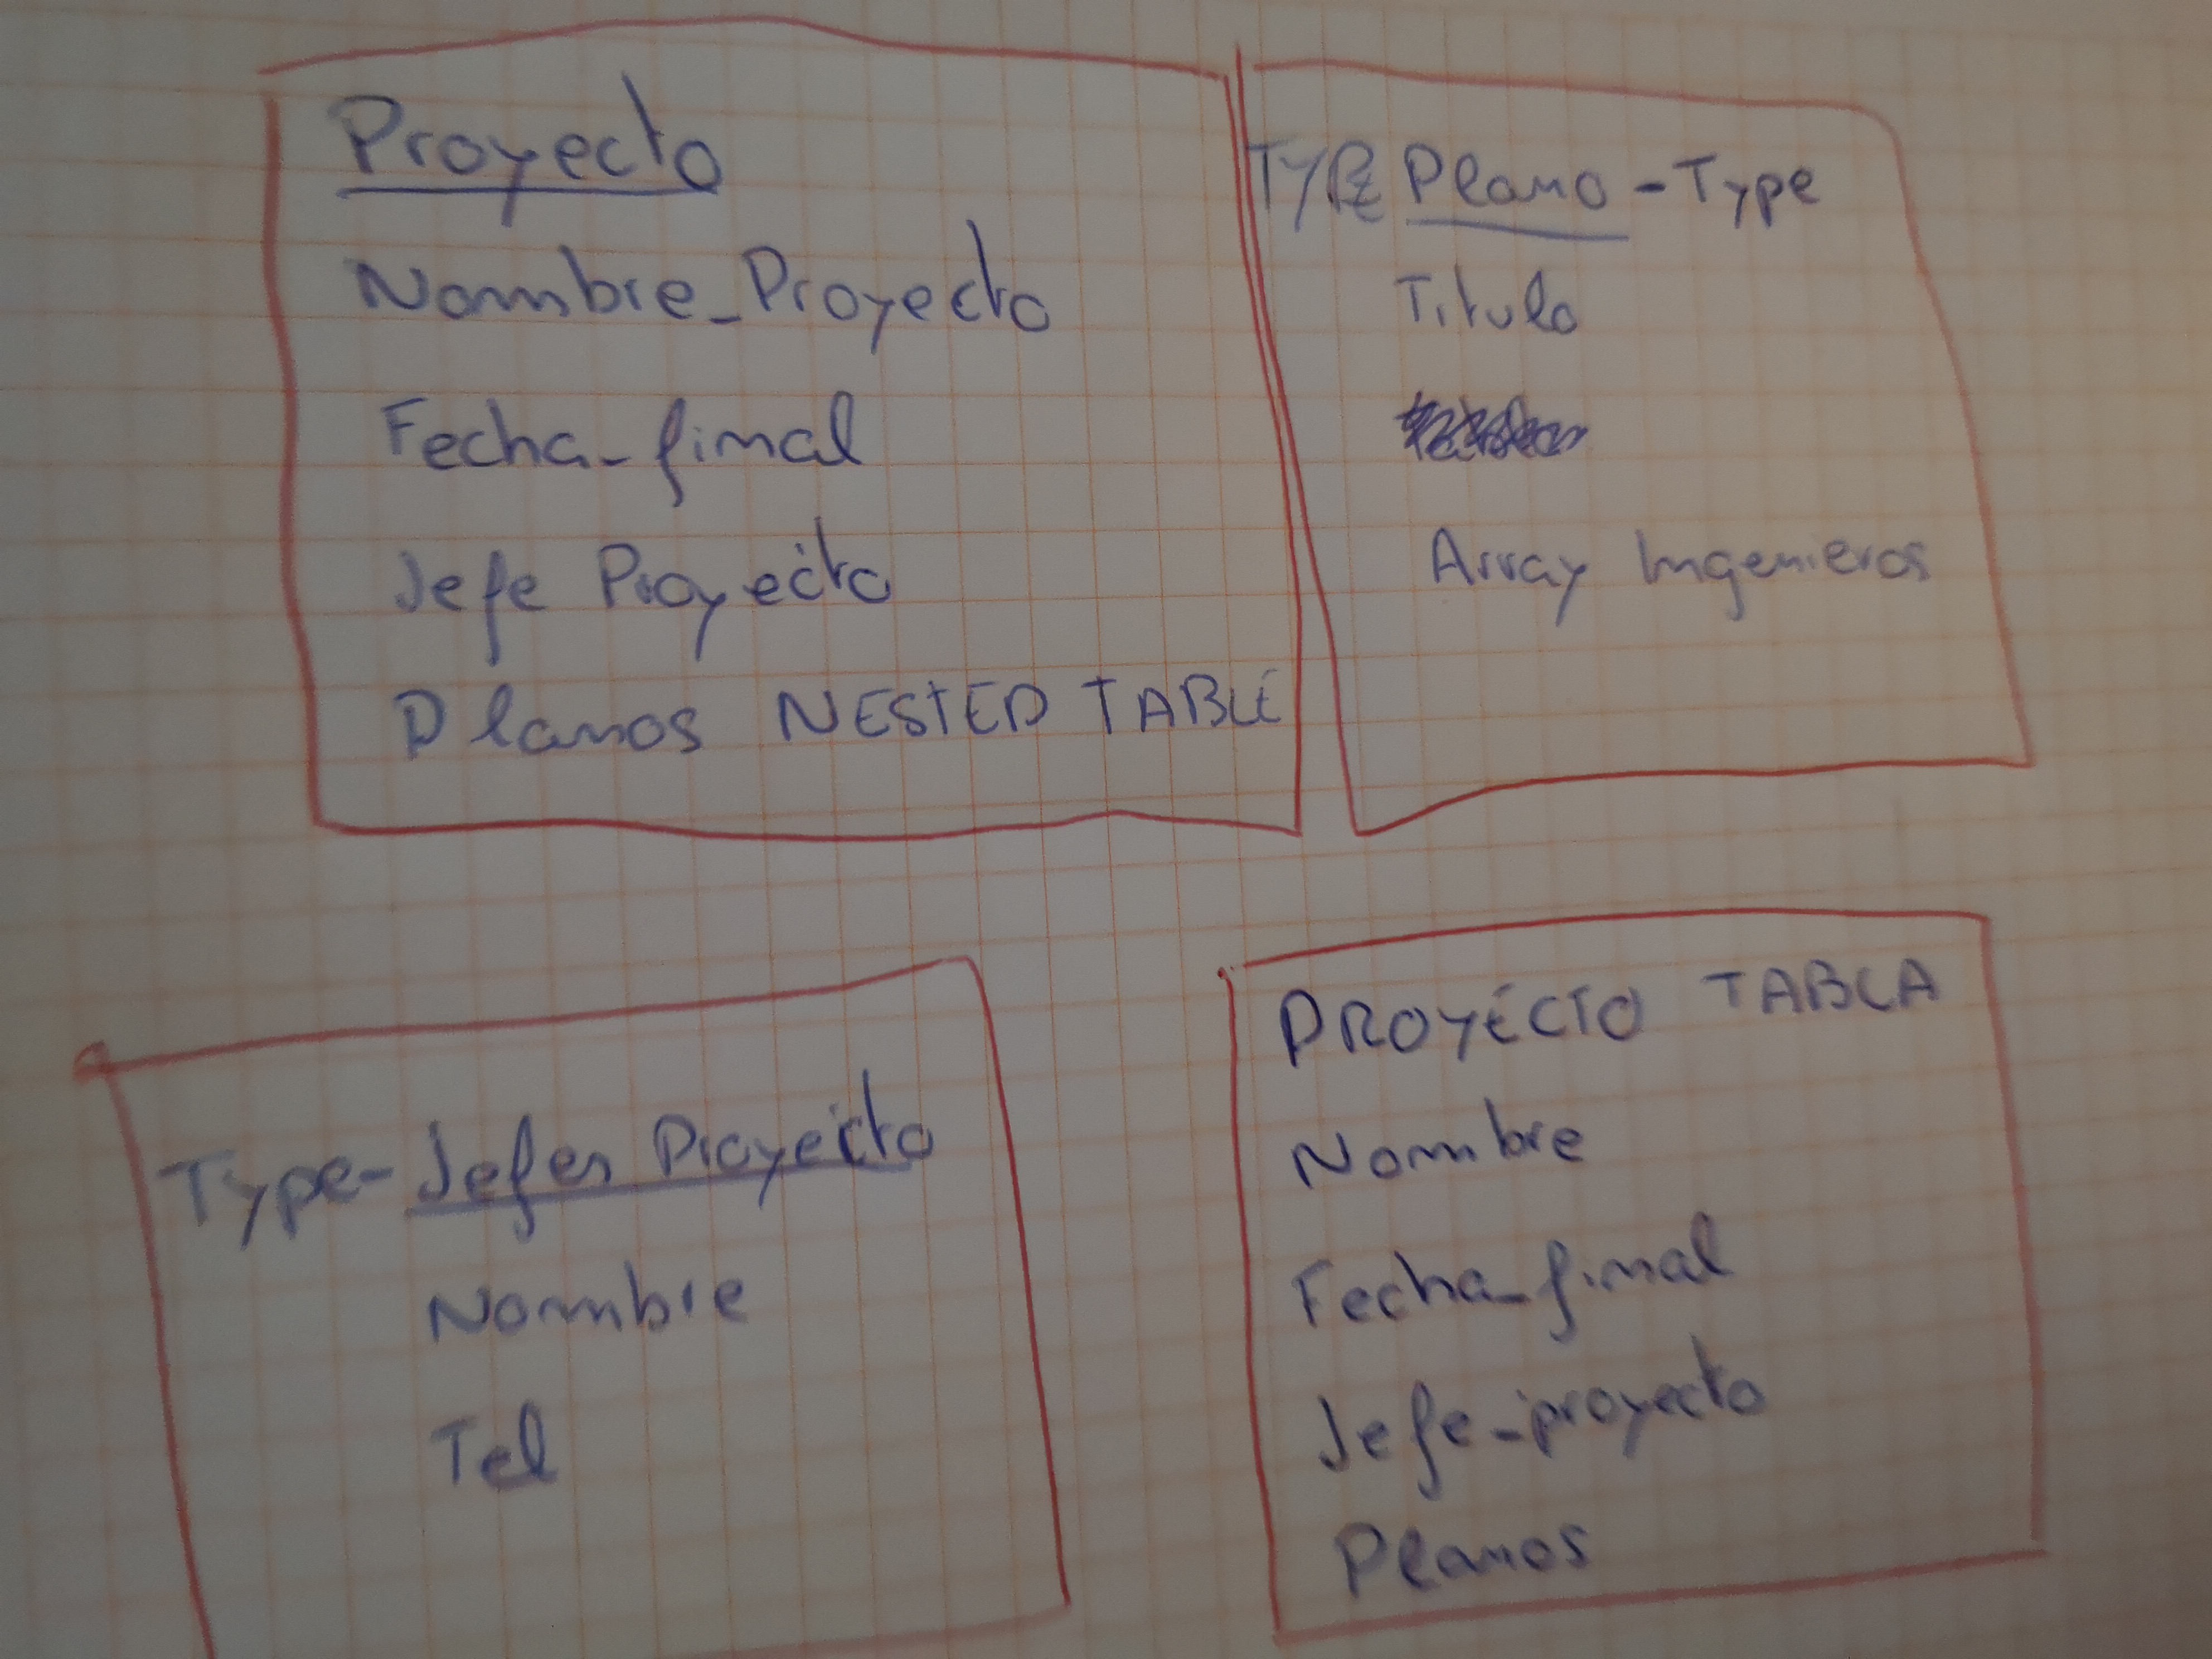 Proyecto
Nombre_Proyecto
Fecha_final
Jefe Proyecto
Planos NESTED TABLE
TYPE Plano-Type
Titulo
Array Ingenieros
Type-Jefes Proyecto
Nombre
Tel
PROYECTO TABLA
Nombre
Fecha_final
Jefe_proyecto
Planos